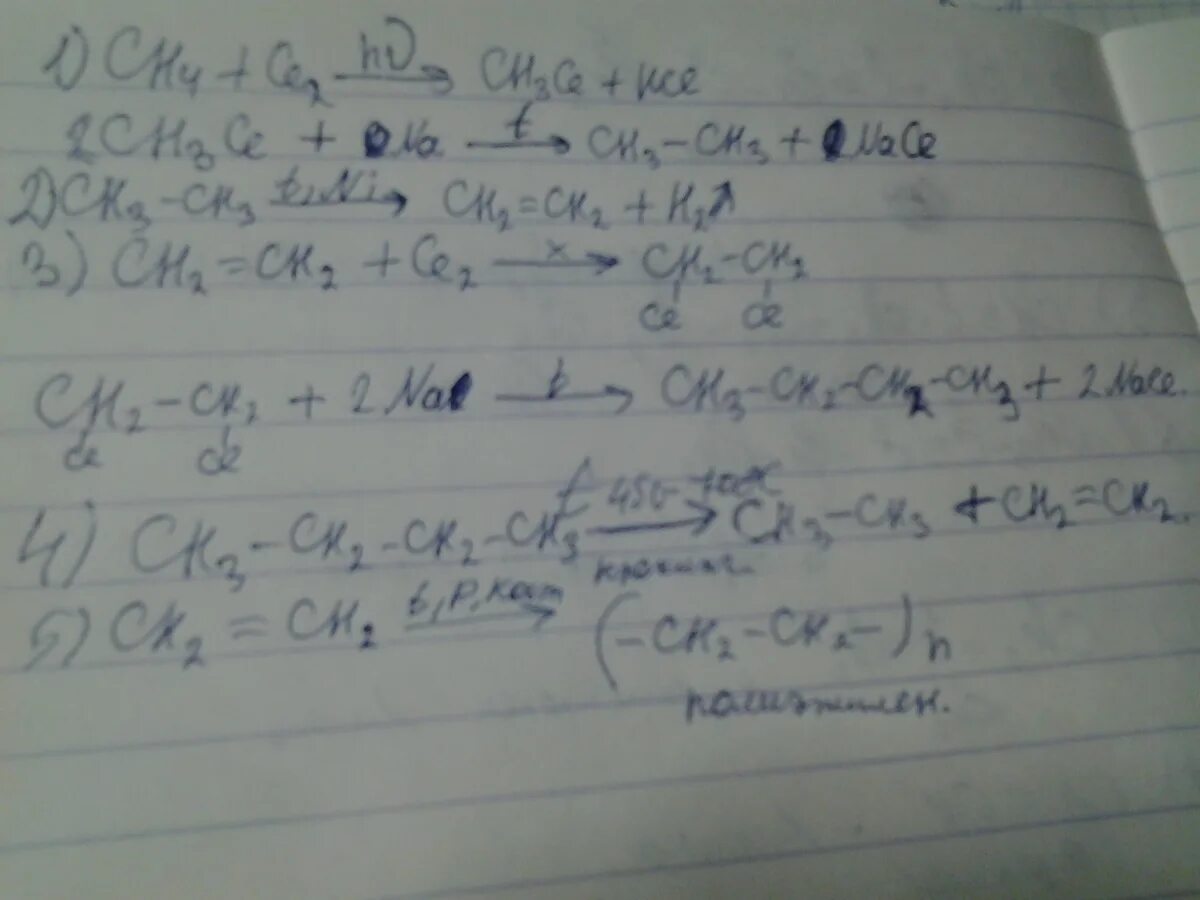 1) CH₄ + Cl₂ —hν→ CH₃Cl + HCl
2CH₃Cl + 2Na —t→ CH₃–CH₃ + 2NaCl
2) CH₃–CH₃ —t, Ni→ CH₂=CH₂ + H₂↑
3) CH₂=CH₂ + Cl₂ —x→ CH₂–CH₂
Cl Cl
CH₂–CH₂ + 2Na —t→ CH₃–CH₂–CH₂–CH₃ + 2NaCl.
Cl Cl
4) CH₃–CH₂–CH₂–CH₃ —t 450-700К→ CH₃–CH₃ + CH₂=CH₂.
крекинг.
5) CH₂=CH₂ —t, P, кат→ (–CH₂–CH₂–)n
полиэтилен.